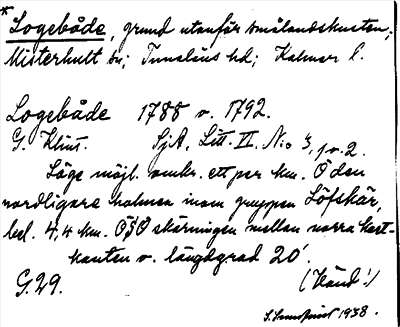 * Logebåde, grund utanför smålandskusten;
Misterhult sn; Tunaläns hd; Kalmar l.
Logebåde 1788 o. 1792.
G. Klint. SjA, Litt. VI. No 3, 1 o. 2.
Läge möjl. omkr. ett par km. Ö den
nordligare holmen inom gruppen Löfskär,
bel. 4,4 km. ÖSÖ skärningen mellan norra kart-
kanten o. längdgrad 20'.
G. 29. (Känd!)
1938.